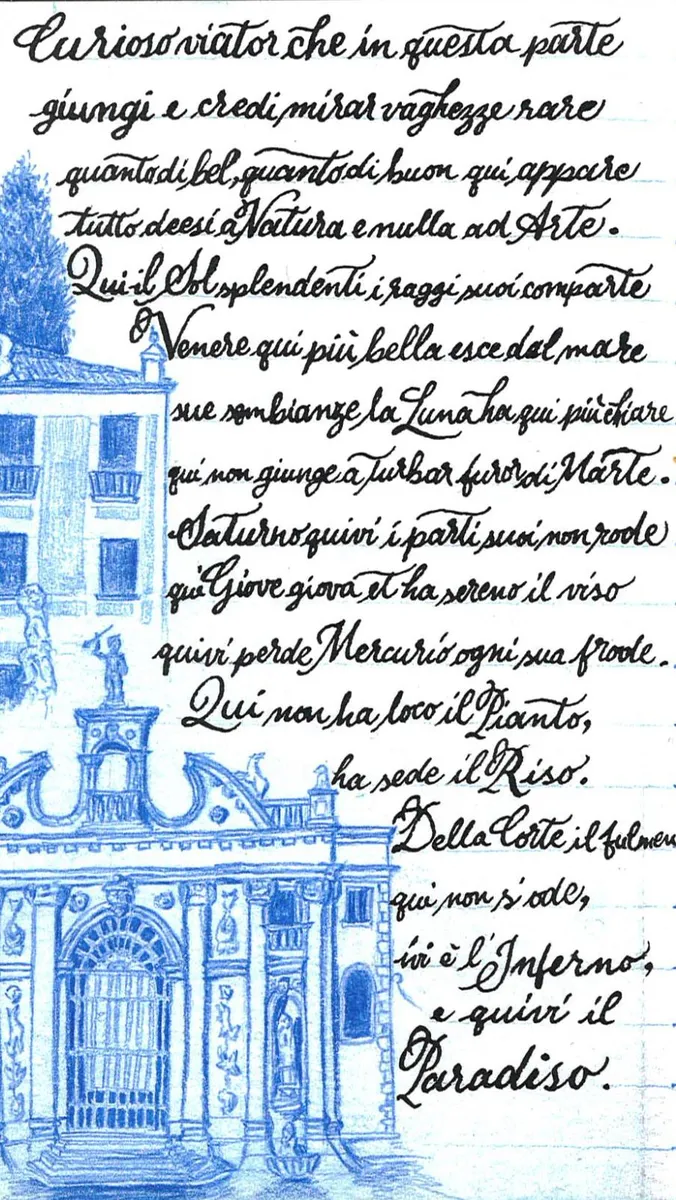 Curioso viator che in questa parte
giungi e credi mirar vaghezze rare
quanto di bel, quanto di buon qui appare
tutto deesi a Natura e nulla ad Arte.
Qui il Sol splendenti i raggi suoi comparte
Venere qui più bella esce dal mare
sue sembianze la Luna ha qui più chiare
qui non giunge a turbar furor di Marte.
Saturno quivi i parti suoi non rode
qui Giove giova et ha sereno il viso
quivi perde Mercurio ogni sua frode.
Qui non ha loco il Pianto,
ha sede il Riso.
Della Corte il fulmen
qui non s'ode,
ivi è l'Inferno,
e quivi il
Paradiso.